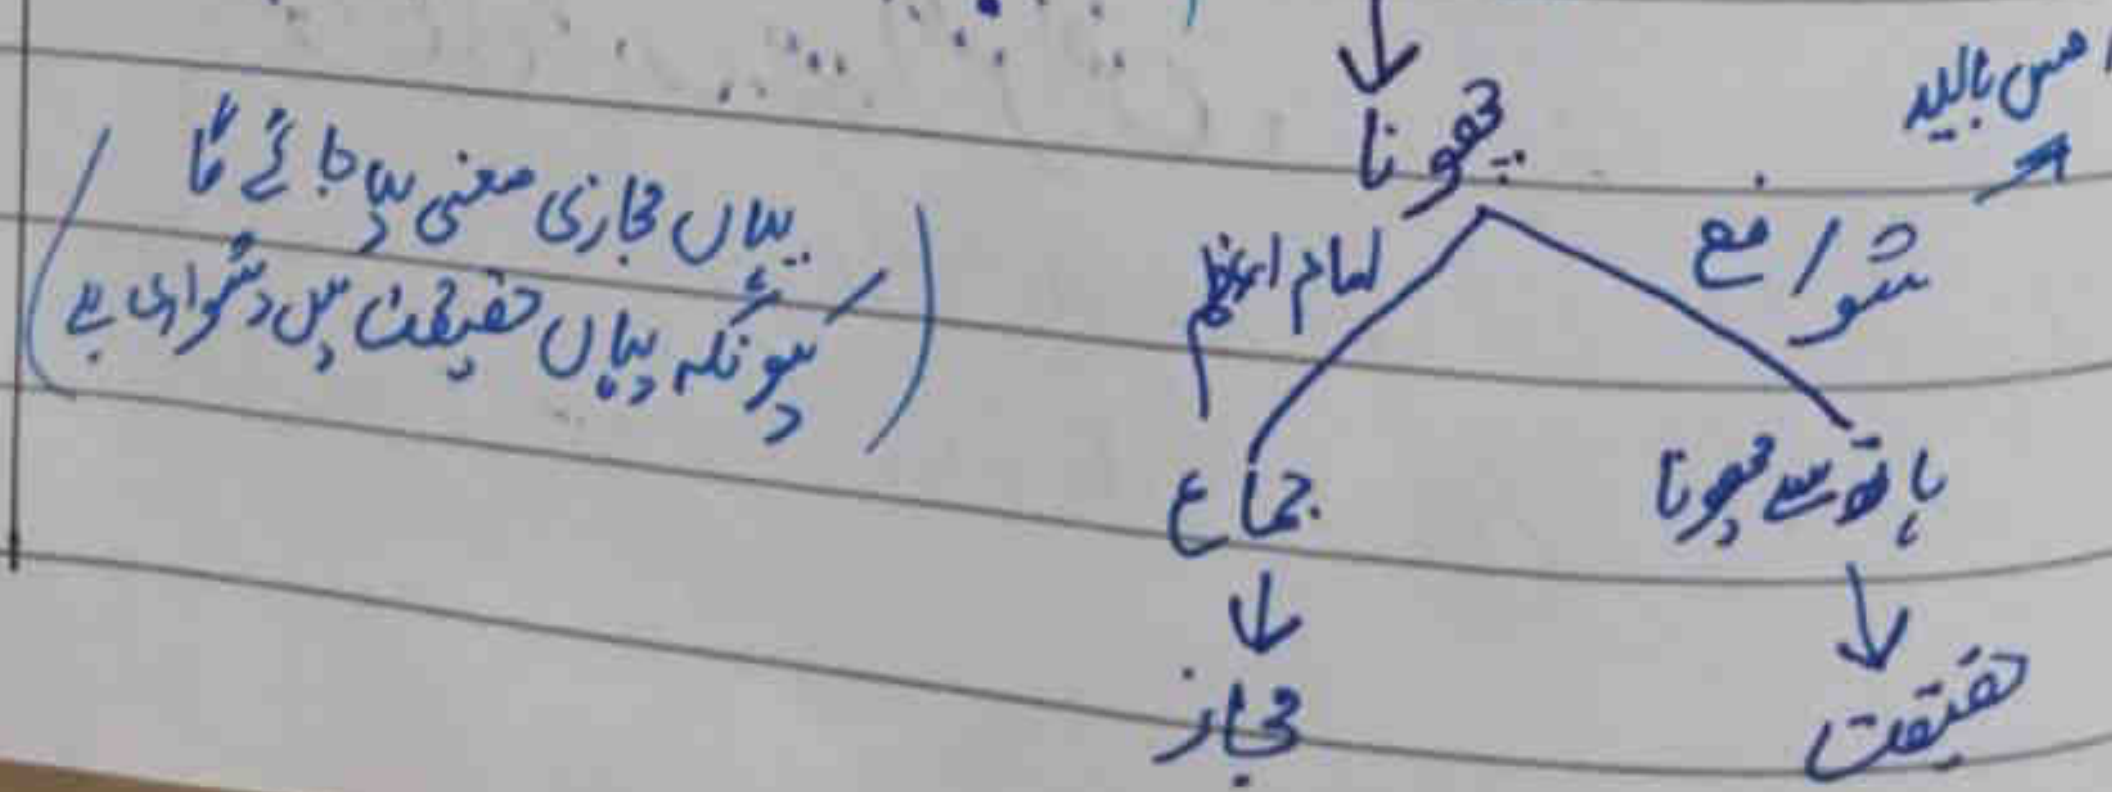 مس بالید
چھونا
شوافع
امام اعظم
ہاتھ سے چھونا
جماع
حقیقت
مجاز
یہاں مجازی معنی لیا جائے گا
کیونکہ یہاں حقیقت میں دشواری ہے